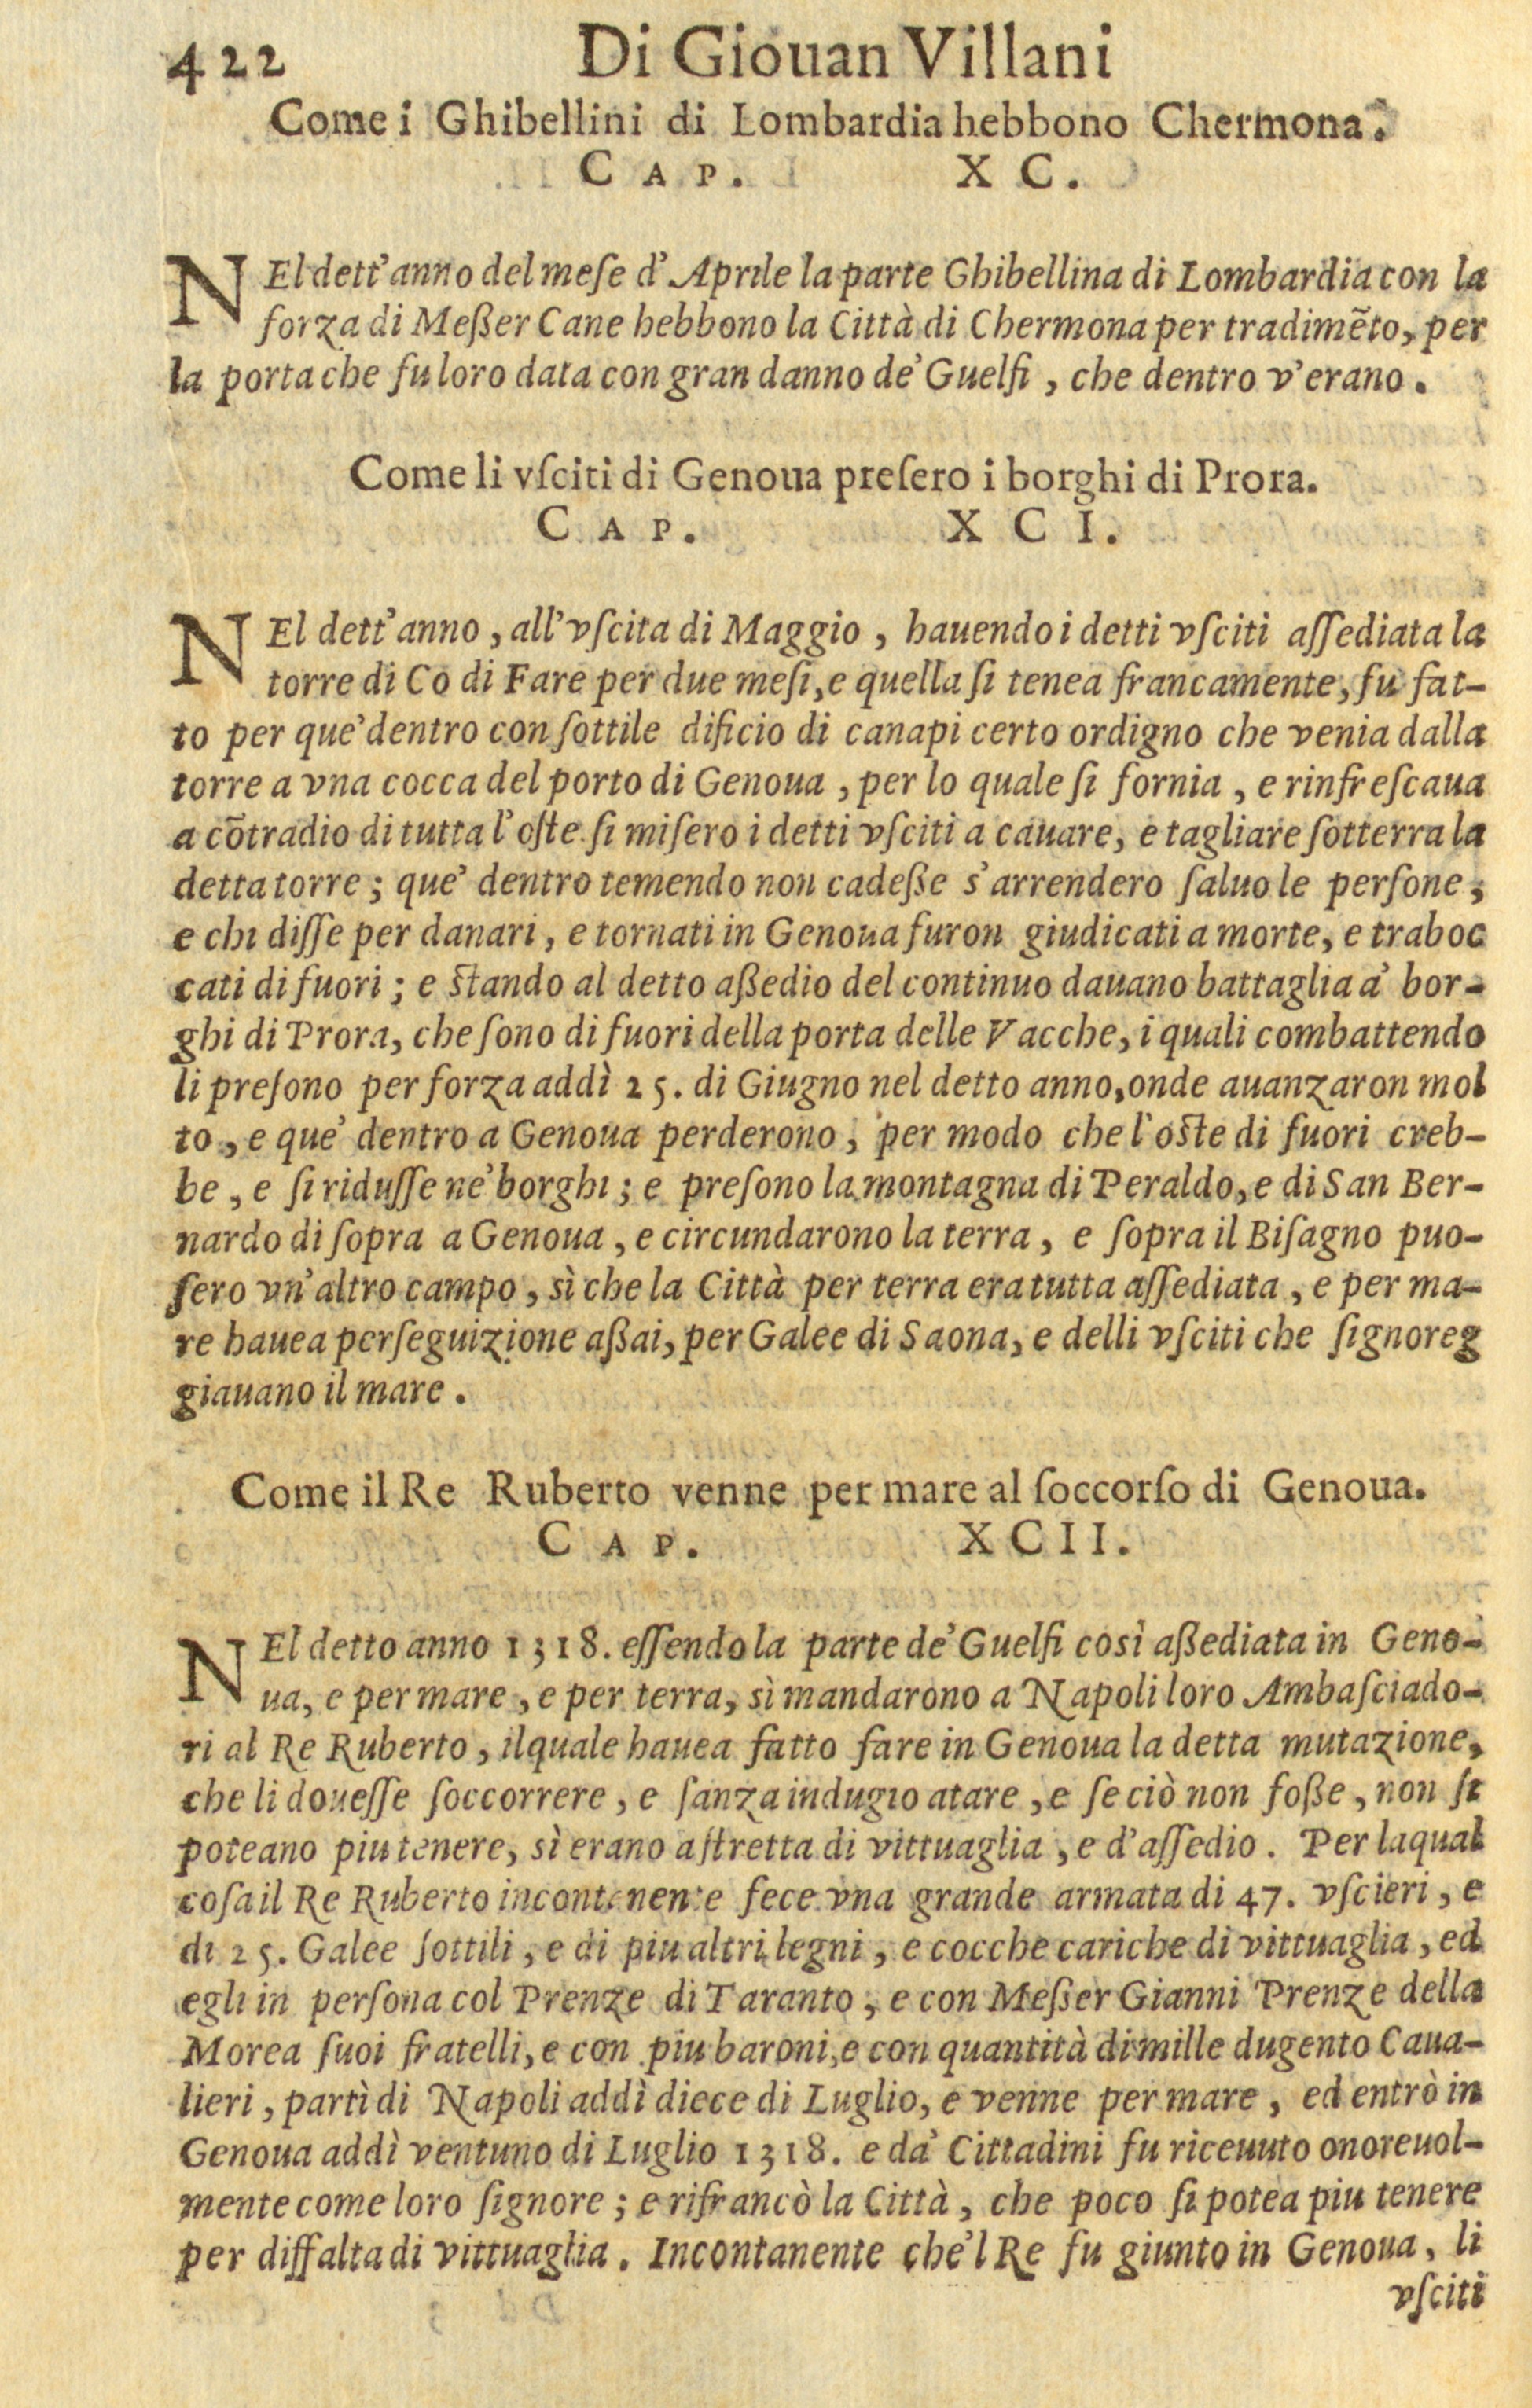 422 Di Giouan Villani
Come i Ghibellini di Lombardia hebbono Chermona.
CAP. XC.
NEl dett'anno del meſe d'Aprile la parte Ghibellina di Lombardia con la
forza di Meßer Cane hebbono la Città di Chermona per tradimēto, per
la porta che fu loro data con gran danno de' Guelfi, che dentro v'erano.
Come li vſciti di Genoua preſero i borghi di Prora.
CAP. XCI.
NEl dett'anno, all'vſcita di Maggio, hauendo i detti vſciti aſſediata la
torre di Co di Fare per due meſi, e quella ſi tenea francamente, fu fat-
to per que' dentro con ſottile dificio di canapi certo ordigno che venia dalla
torre a vna cocca del porto di Genoua, per lo quale ſi fornia, e rinfreſcaua
a cōtradio di tutta l'oſte ſi miſero i detti vſciti a cauare, e tagliare ſotterra la
detta torre; que' dentro temendo non cadeße s'arrendero ſaluo le perſone;
e chi diſſe per danari, e tornati in Genoua furon giudicati a morte, e traboc
cati di fuori; e ſtando al detto aßedio del continuo dauano battaglia a' bor-
ghi di Prora, che ſono di fuori della porta delle Vacche, i quali combattendo
li preſono per forza addì 25. di Giugno nel detto anno, onde auanzaron mol
to, e que' dentro a Genoua perderono, per modo che l'oſte di fuori creb-
be, e ſi riduſſe ne' borghi; e preſono la montagna di Peraldo, e di San Ber-
nardo di ſopra a Genoua, e circundarono la terra, e ſopra il Biſagno puo-
ſero vn'altro campo, sì che la Città per terra era tutta aſſediata, e per ma-
re hauea perſeguizione aßai, per Galee di Saona, e delli vſciti che ſignoreg
giauano il mare.
Come il Re Ruberto venne per mare al ſoccorſo di Genoua.
CAP. XCII.
NEl detto anno 1318. eſſendo la parte de' Guelfi così aßediata in Geno-
ua, e per mare, e per terra, sì mandarono a Napoli loro Ambaſciado-
ri al Re Ruberto, ilquale hauea fatto fare in Genoua la detta mutazione,
che li doueſſe ſoccorrere, e ſanza indugio atare, e ſe ciò non foße, non ſi
poteano piu tenere, sì erano aſtretta di vittuaglia, e d'aſſedio. Per laqual
coſa il Re Ruberto incontenente fece vna grande armata di 47. vſcieri, e
di 25. Galee ſottili, e di piu altri legni, e cocche cariche di vittuaglia, ed
egli in perſona col Prenze di Taranto, e con Meßer Gianni Prenze della
Morea ſuoi fratelli, e con piu baroni, e con quantità di mille dugento Caua-
lieri, partì di Napoli addì diece di Luglio, e venne per mare, ed entrò in
Genoua addì ventuno di Luglio 1318. e da' Cittadini fu riceuuto onoreuol-
mente come loro ſignore; e rifrancò la Città, che poco ſi potea piu tenere
per diffalta di vittuaglia. Incontanente che'l Re fu giunto in Genoua, li
vſciti